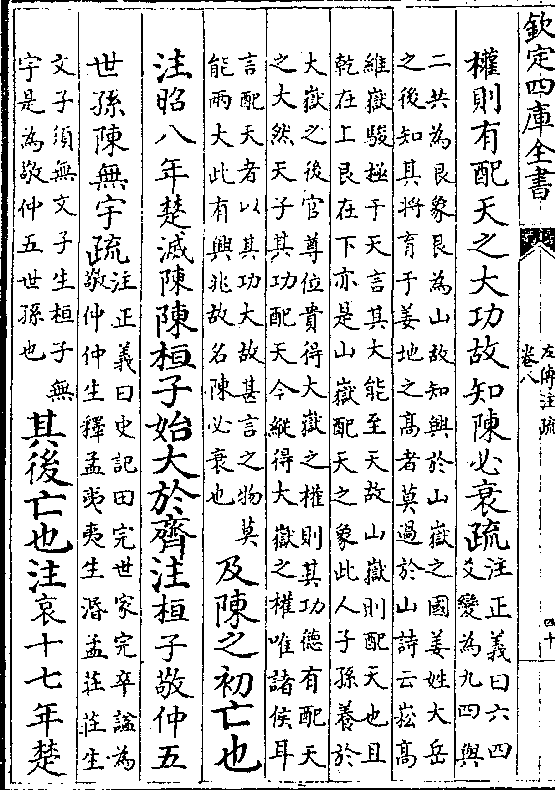 欽定四庫全書
左傳注疏
卷八
四十
權則有配天之大功故知陳必衰疏
注正義曰六四
爻變為九四與
二共為艮象艮為山故知興於山嶽之國姜姓大岳
之後知其將育于姜地之髙者莫過於山詩云崧髙
維嶽駿極于天言其大能至天故山嶽則配天也且
乾在上艮在下亦是山嶽配天之象此人子孫養於
大嶽之後官尊位貴得大嶽之權則其功德有配天
之大然天子其功配天今縱得大嶽之權唯諸侯耳
言配天者以其功大故甚言之物莫
能兩大此有興兆故名陳必衰也
及陳之初亡也
注昭八年楚滅陳陳桓子始大於齊注桓子敬仲五
世孫陳無宇疏
注正義曰史記田完世家完卒諡為
敬仲仲生穉孟夷夷生湣孟莊莊生
文子須無文子生桓子無
宇是為敬仲五世孫也
其後亡也注哀十七年楚